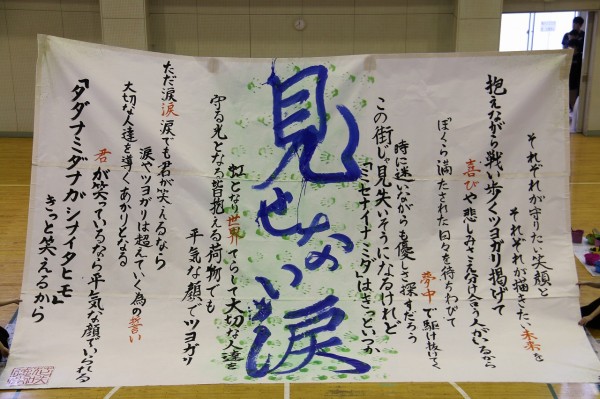 それぞれが守りたい笑顔と
それぞれが描きたい未来を
抱えながら戦い歩くツヨガリ掲げて
喜びや悲しみさえ分け合う人がいるから
ぼくら満たされた日々を待ちわびて
夢中で駆け抜けく
時に迷いながらも優しさ探すだろう
この街じゃ見失いそうになるけれど
「ミセナイナミダ」はきっといつか
見せない涙
虹となり世界てらして大切な人達を
守る光となる皆抱える荷物でも
平気な顔でツヨガリ
ただ涙涙涙でも君が笑えるなら
涙やツヨガリは超えていく為の誓い
大切な人達を導くあかりとなる
君が笑っているなら平気な顔でいられる
『タダナミダナガシナイタヒモ』
きっと笑えるから